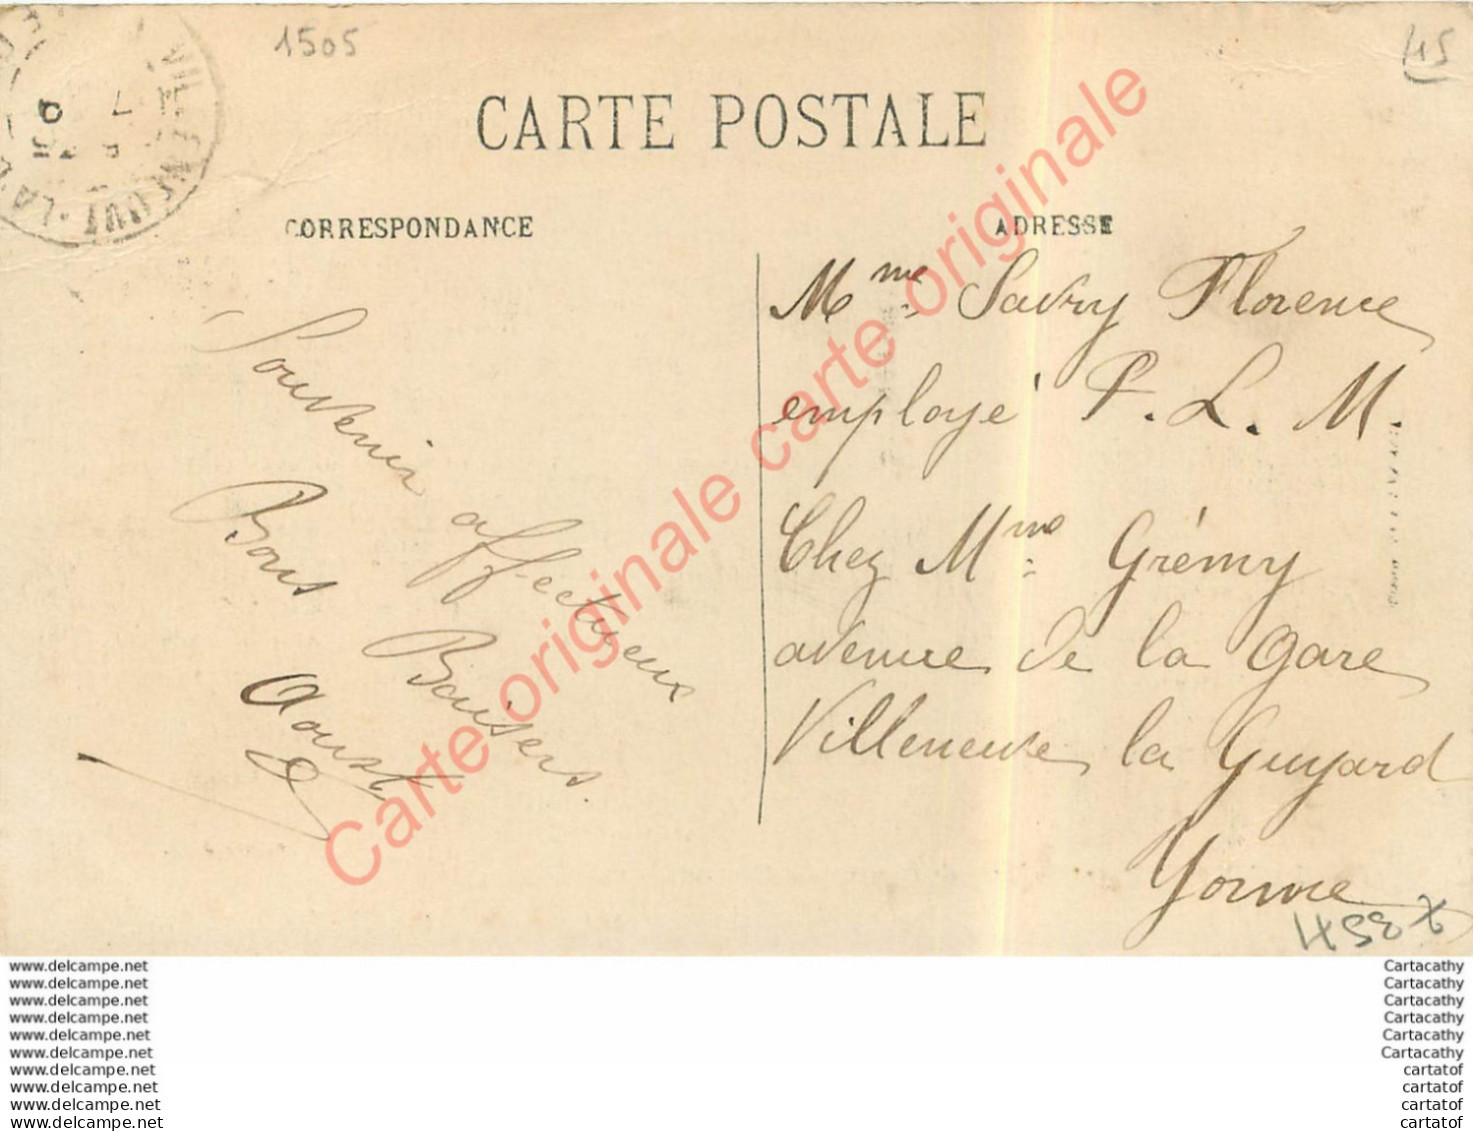 1505
45
CARTE POSTALE
CORRESPONDANCE
ADRESSE
Souvenir affectueux
Bons Baisers
Aoust
Mme Savry Florence
employé P. L. M.
Chez Mme Grémy
avenue de la Gare
Villeneuve la Guyard
Yonne
Carte originale carte originale
www.delcampe.net
www.delcampe.net
www.delcampe.net
www.delcampe.net
www.delcampe.net
www.delcampe.net
www.delcampe.net
www.delcampe.net
www.delcampe.net
www.delcampe.net
Cartacathy
Cartacathy
Cartacathy
Cartacathy
Cartacathy
Cartacathy
cartatof
cartatof
cartatof
cartatof